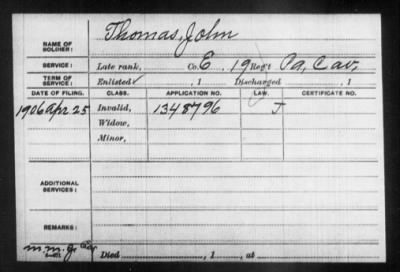 Thomas, John
NAME OF SOLDIER:
SERVICE: Late rank, Co. E, 19 Reg't Pa. Cav.
TERM OF SERVICE: Enlisted , 1 Discharged , 1
DATE OF FILING. CLASS. APPLICATION NO. LAW. CERTIFICATE NO.
1906 Apr 25 Invalid, 1348796 J
Widow,
Minor,
ADDITIONAL SERVICES:
REMARKS:
Died , 1 , at